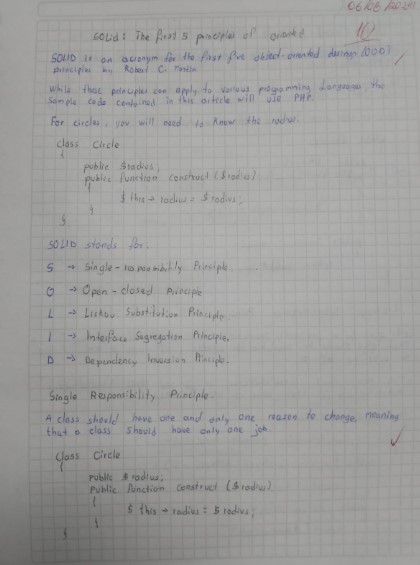 SOLID: The first 5 principles of oriented
SOLID is an acronym for the first five object-oriented design (OOD)
principles by Robert C. Martin
While these principles can apply to various programming languages, the
sample code contained in this article will use PHP.
For circles, you will need to know the radius.
class Circle
{
public $radius;
public function construct ($radius)
{
$this → radius = $radius;
}
}
SOLID stands for.
S → Single-responsibility Principle
O → Open-closed Principle
L → Liskov Substitution Principle
I → Interface Segregation Principle.
D → Dependency Inversion Principle.
Single Responsibility Principle.
A class should have one and only one reason to change, meaning
that a class should have only one job.
class Circle
{
public $radius;
public function construct ($radius)
{
$this → radius = $radius;
}
}